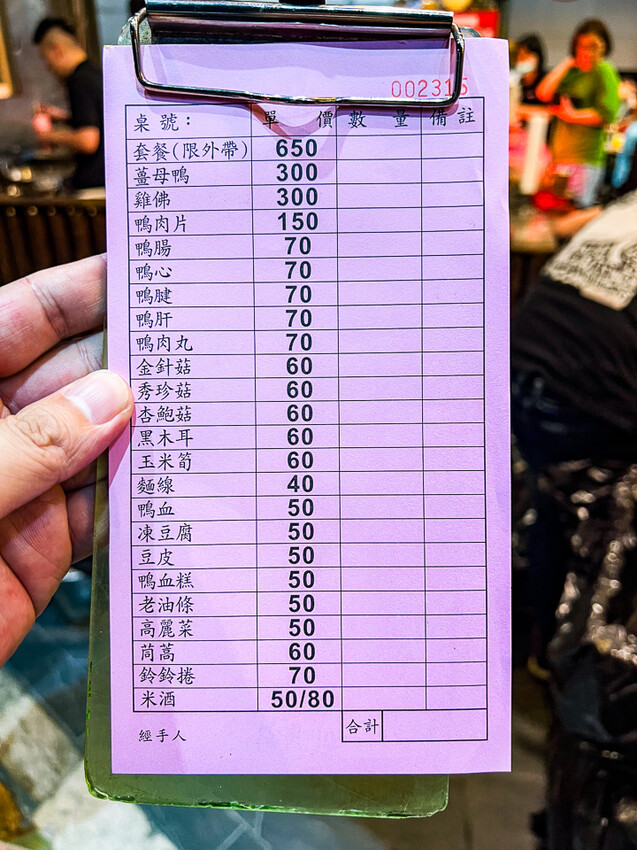 002315
桌號： 單價 數量 備註
套餐(限外帶) 650
薑母鴨 300
雞佛 300
鴨肉片 150
鴨腸 70
鴨心 70
鴨腱 70
鴨肝 70
鴨肉丸 70
金針菇 60
秀珍菇 60
杏鮑菇 60
黑木耳 60
玉米筍 60
麵線 40
鴨血 50
凍豆腐 50
豆皮 50
鴨血糕 50
老油條 50
高麗菜 50
茼蒿 60
鈴鈴捲 70
米酒 50/80
經手人 合計